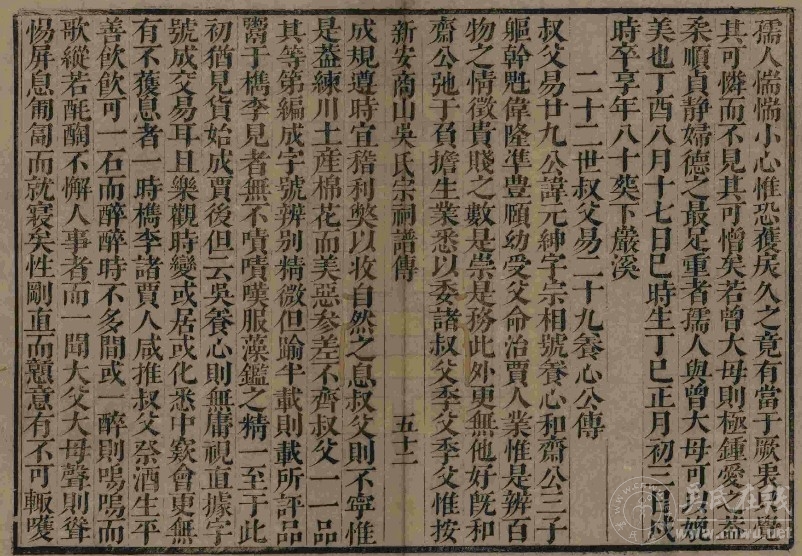 孺人惴惴小心惟恐獲戾久之竟有當于厥衷曾
其可憐而不見其可憎矣若曾大母則極鍾愛之蓋
柔順貞静婦德之最足重者孺人與曾大母可
美也丁酉八月十七日巳時生丁巳正月初三日戌
時卒享年八十葬下嚴溪
二十二世叔父易二十九養心公傳
叔父易廿九公諱元紳字宗相號養心和齋公三子
軀幹魁偉隆準豊頤幼受父命治賈人業惟是辨百
物之情徴貴賤之數是崇是務此外更無他好旣和
齋公弛于負擔生業悉以委諸叔父季父季父惟按
新安商山吳氏宗祠譜傳
五十二
成規遵時宜稽利獘以收自然之息叔父則不寧惟
是葢練川土産棉花而美惡参差不齊叔父一一品
其等第編成字號辨别精微但踰半載則載所評品
鬻于檇李見者無不嘖嘖嘆服藻鑑之精一至于此
初猶見貨始成賈後但云吳養心則無庸視直據字
號成交易耳且樂觀時變或居或化悉中窽會更無
有不獲息者一時檇李諸賈人咸推叔父祭酒生平
善飲飲可一石而醉醉時不多間或一醉則嗚嗚而
歌縱若酕醄不懈人事者而一聞大父大母聲則聳
惕屏息匍匐而就寢矣性剛直而戅意有不可輙嚄
吳氏在线